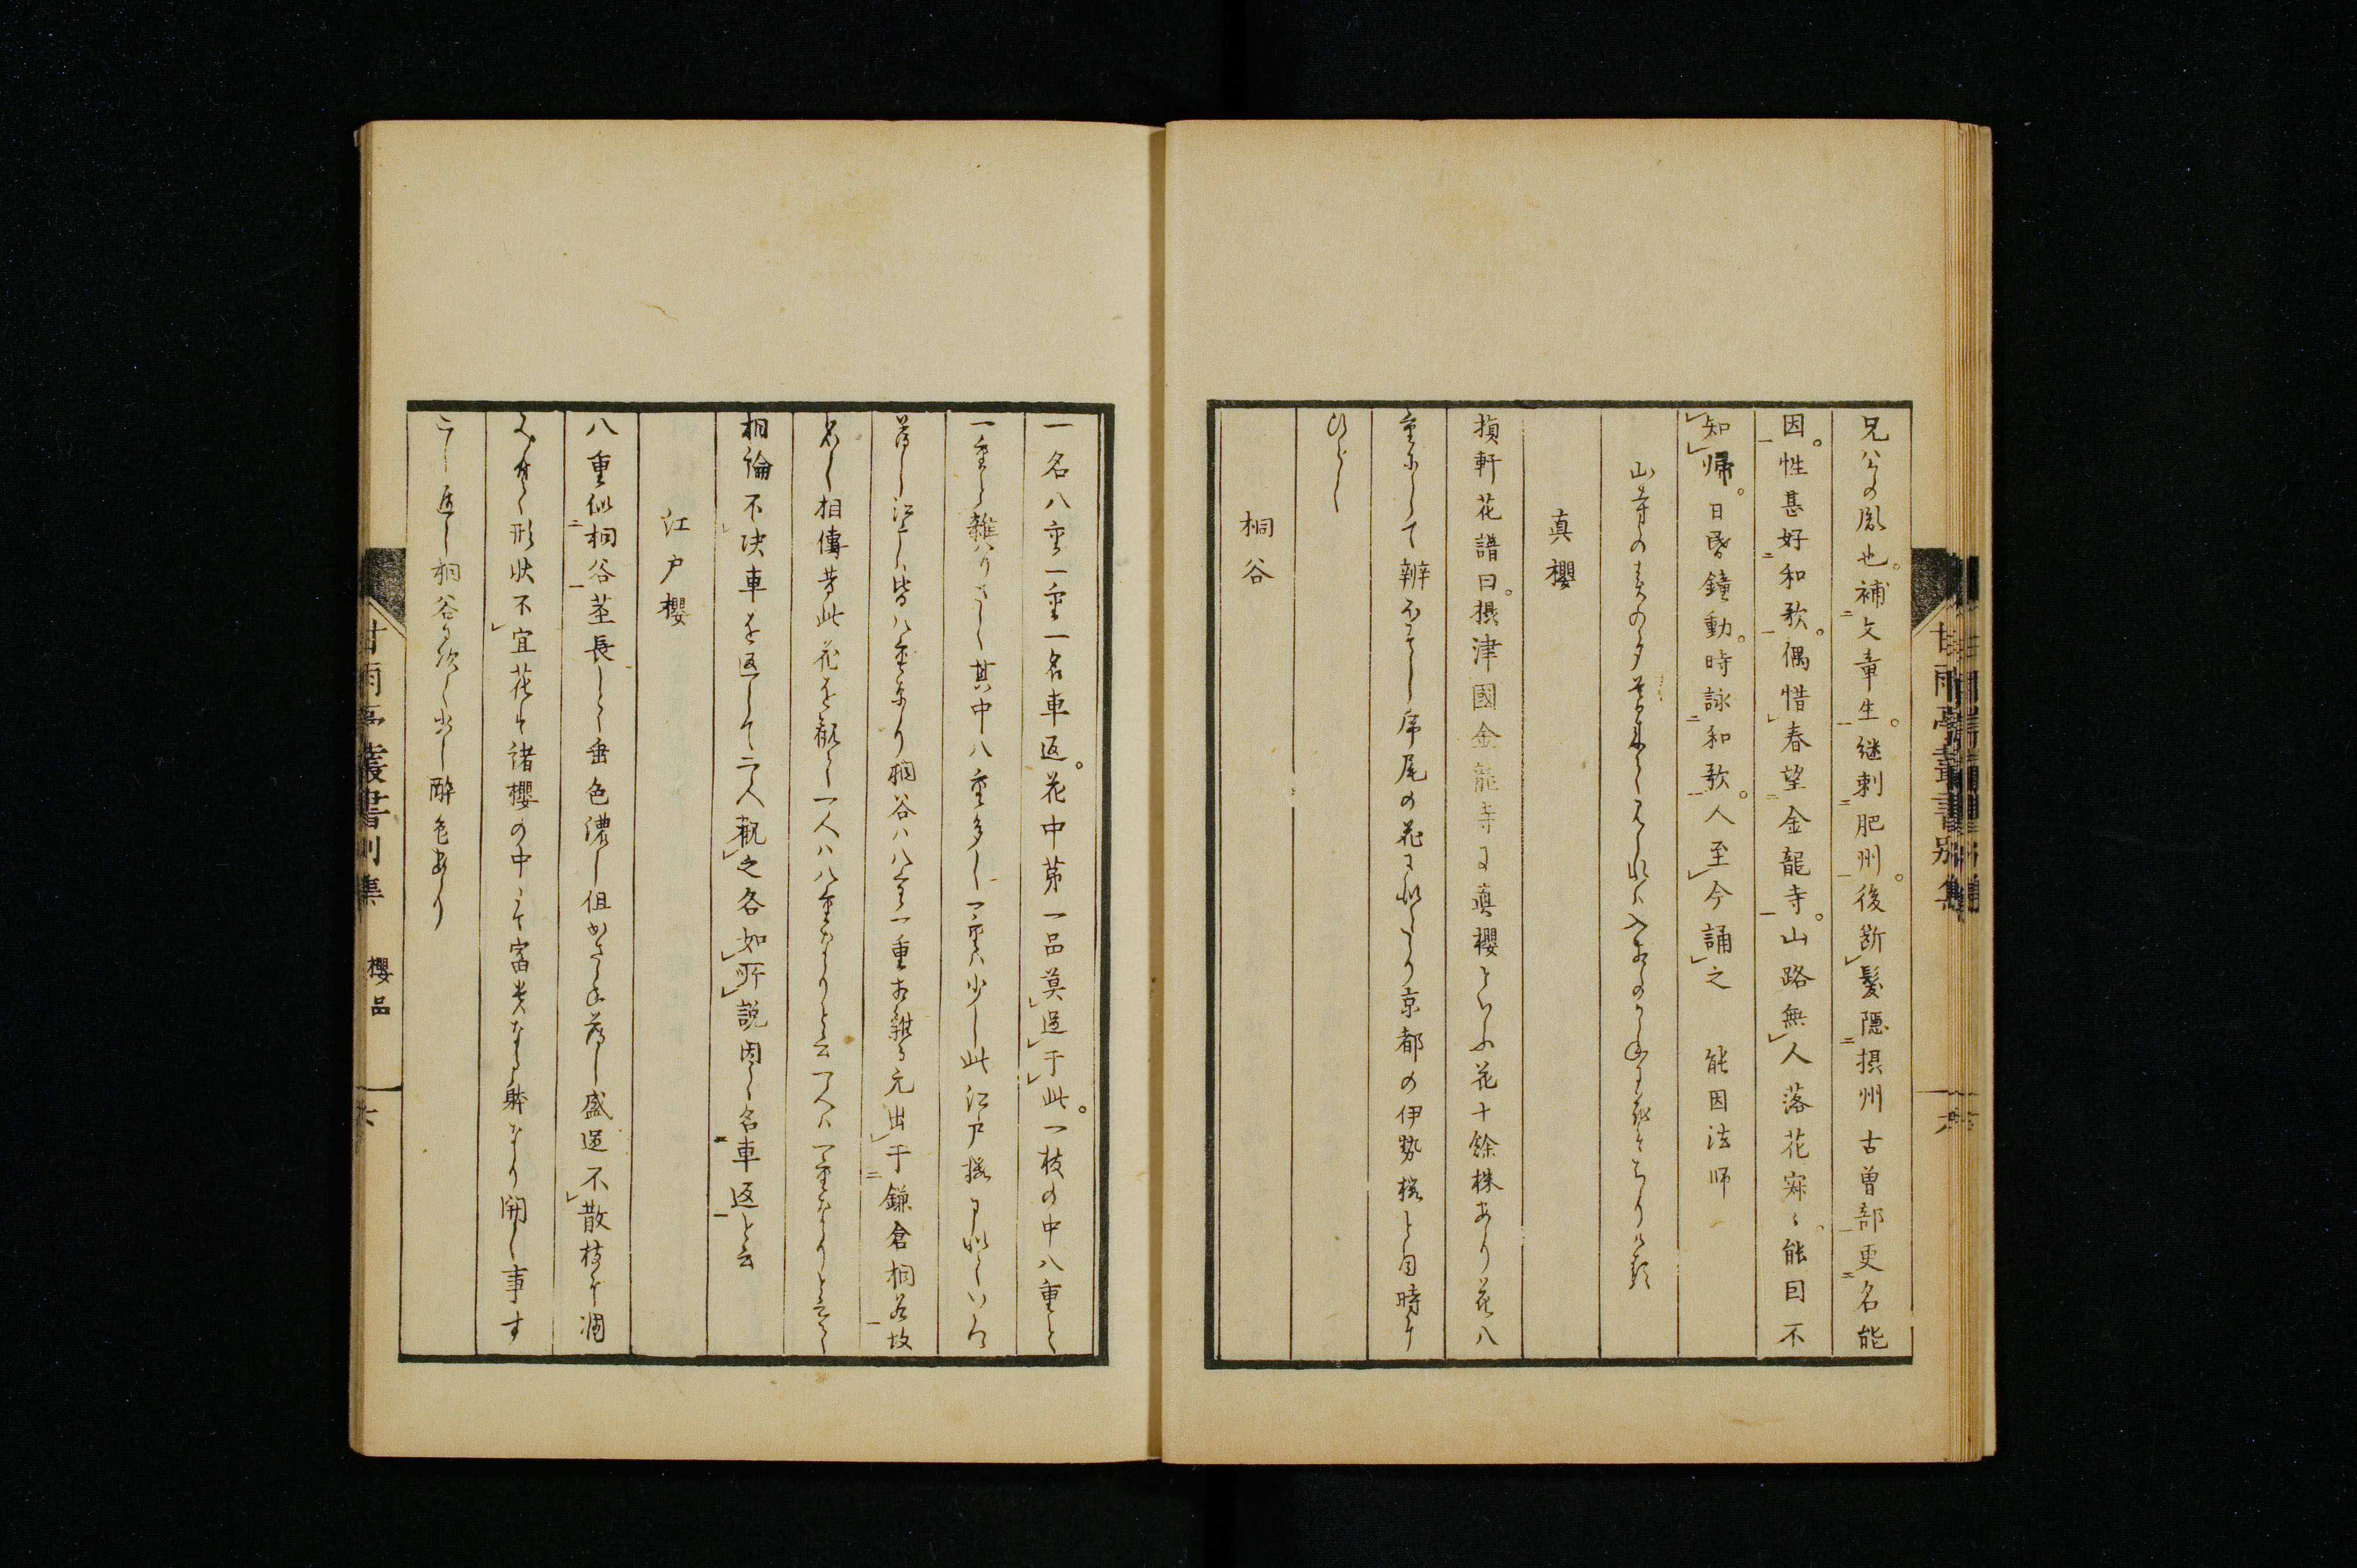 兄公の胤也。補文章生。継刺肥州。後断髪隠摂州古曽部更名能
因。性甚好和歌。偶惜春望金龍寺。山路無人落花寂々。能因不
知帰。日昏鐘動。時詠和歌。人至今誦之　能因法師
山寺の春の夕暮来てみれは入あひのかねに花そちりける
真櫻
損軒花譜曰。摂津國金龍寺に真櫻といふ花十餘株あり花八
重にして辨
京都の伊勢桜と同時に
ひらく
桐谷
甘雨亭叢書別集
六
一名八重一重一名車返。花中第一品莫過于此。一枝の中八重と
一重と雑はりさく其中八重多し一重ハ少し此江戸桜に似ていろ
薄し江戸ハ皆八重なり桐谷ハ八重一重相雑る元出于鎌倉桐谷故
名く相傳昔此花を観て一人ハ八重なりと云一人ハ一重なりと云て
相論不决車を返して二人観之各如所説因て名車返と云
江戸櫻
八重似桐谷茎長して垂色濃し但かさね薄し盛過不散枝に凋
形状不宜花も諸櫻の中にて富貴なる躰なり開く事す
こし遅し桐谷に次く少し酔色あり
甘雨亭叢書別集
櫻品
六